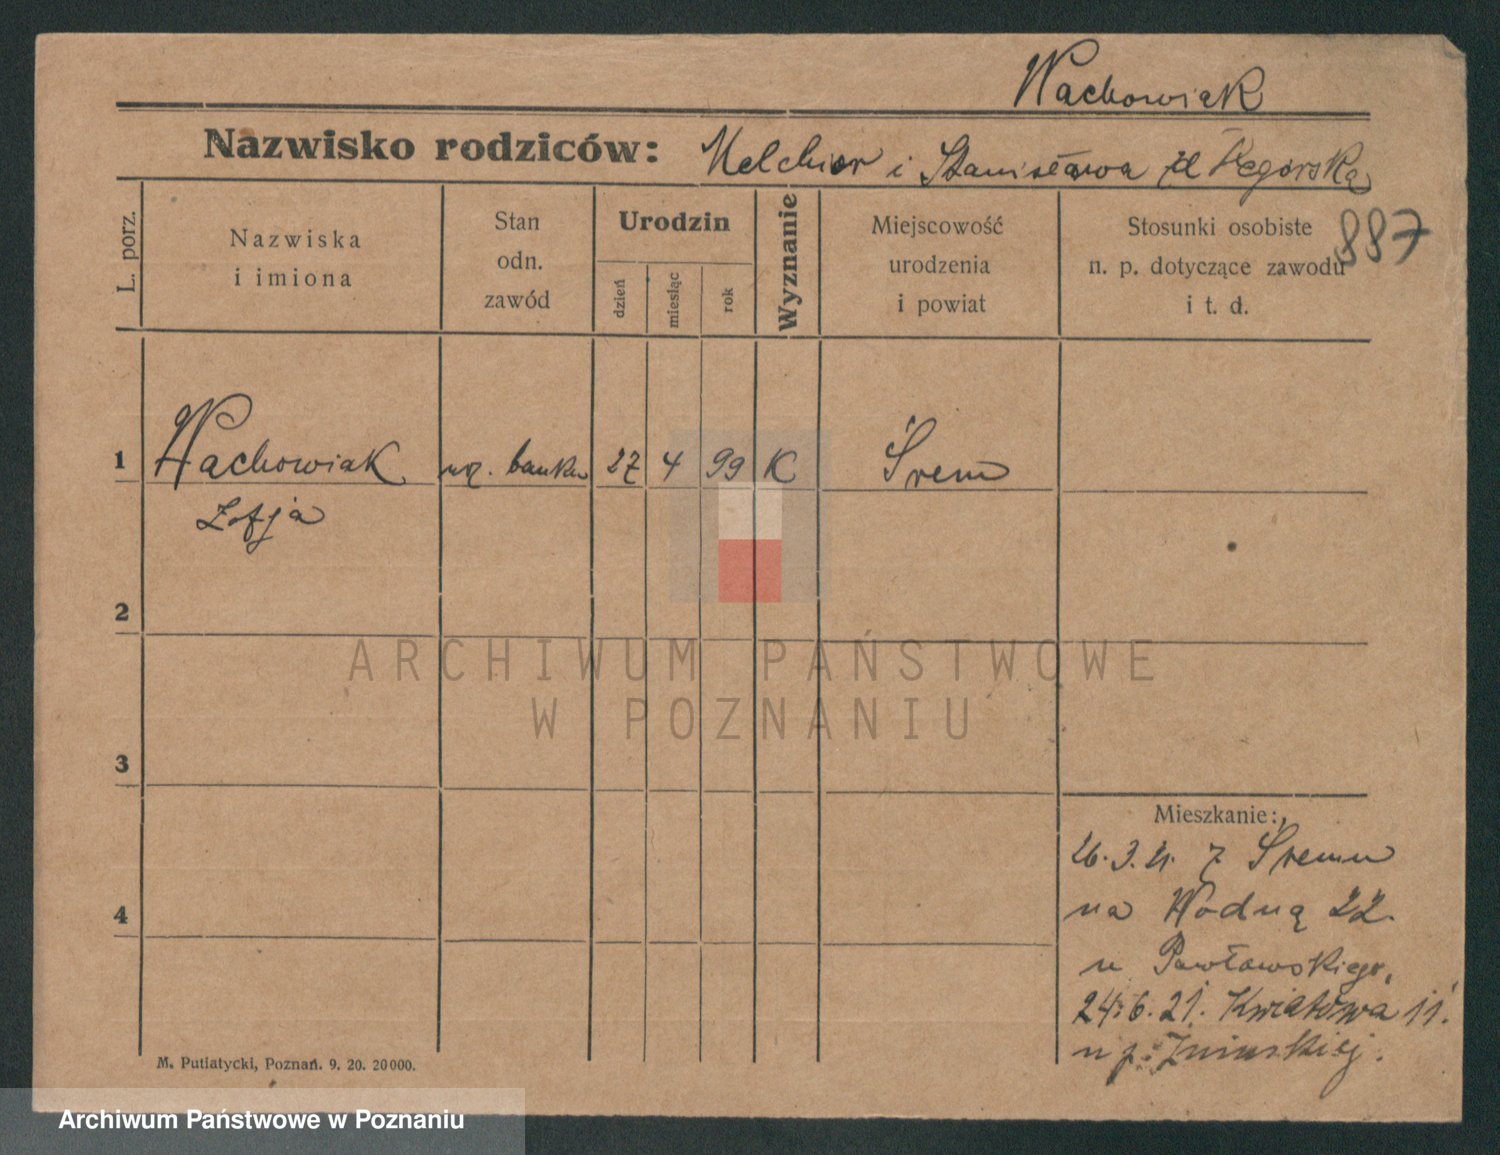 Wachowiak
Nazwisko rodziców: Melchior i Stanisława
887
L. porz.
Nazwiska
i imiona
Stan
odn.
zawód
Urodzin
dzień
miesiąc
rok
Wyznanie
Miejscowość
urodzenia
i powiat
Stosunki osobiste
n. p. dotyczące zawodu
i t. d.
1 Wachowiak urz. banku 27 4 99 K Śrem
Zofja
2
3
4
Mieszkanie:
26.3.21. z Śremu
na Wodną 22.
u Pawławskiego,
24.6.21. Kwiatowa 11.
u p.
M. Putiatycki, Poznań. 9. 20. 20000.
ARCHIWUM PAŃSTWOWE
W POZNANIU
Archiwum Państwowe w Poznaniu